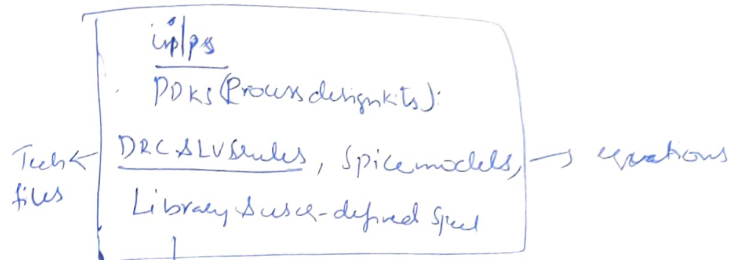 i/ps
PDKs (Process design kits):
Tech files ← DRC & LVS rules, Spice models, → equations
Library & user-defined spec